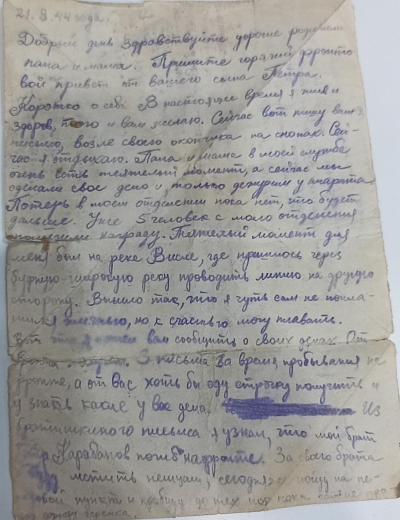 21. 8. 44 года.
Добрый день здравствуйте дорогие родители
папа и мама. Примите горячий фронто
вой привет от вашего сына Петра.
Коротко о себе. В настоящее время я жив и
здоров, того и вам желаю. Сейчас вот пишу вам
письмо, возле своего окопчика на снопах. Сей-
час я отдыхаю. Папа и мама в моей службе
очень есть тяжелый момент, а сейчас мы
сделали свое дело и только дежурим у аппарата
Потерь в моем отделении пока нет, что будет
дальше. Уже 5 человек с моего отделения
получили награду. Тяжелый момент для
меня был на реке Висле, где пришлось через
бурную широкую реку проводить линию на другую
сторону. Вышло так, что я чуть сам не
но к счастью могу плавать.
Вот что я вам сообщить о своих делах. От
3 письма за время пребывания на
фронте, а от вас хоть бы одну строчку получить и
узнать какие у вас дела. Из
письма я узнал, что мой брат
Карабанов погиб на фронте. За своего брата
мстить немцам, сегодня пойду на
пункт и до тех пор пока